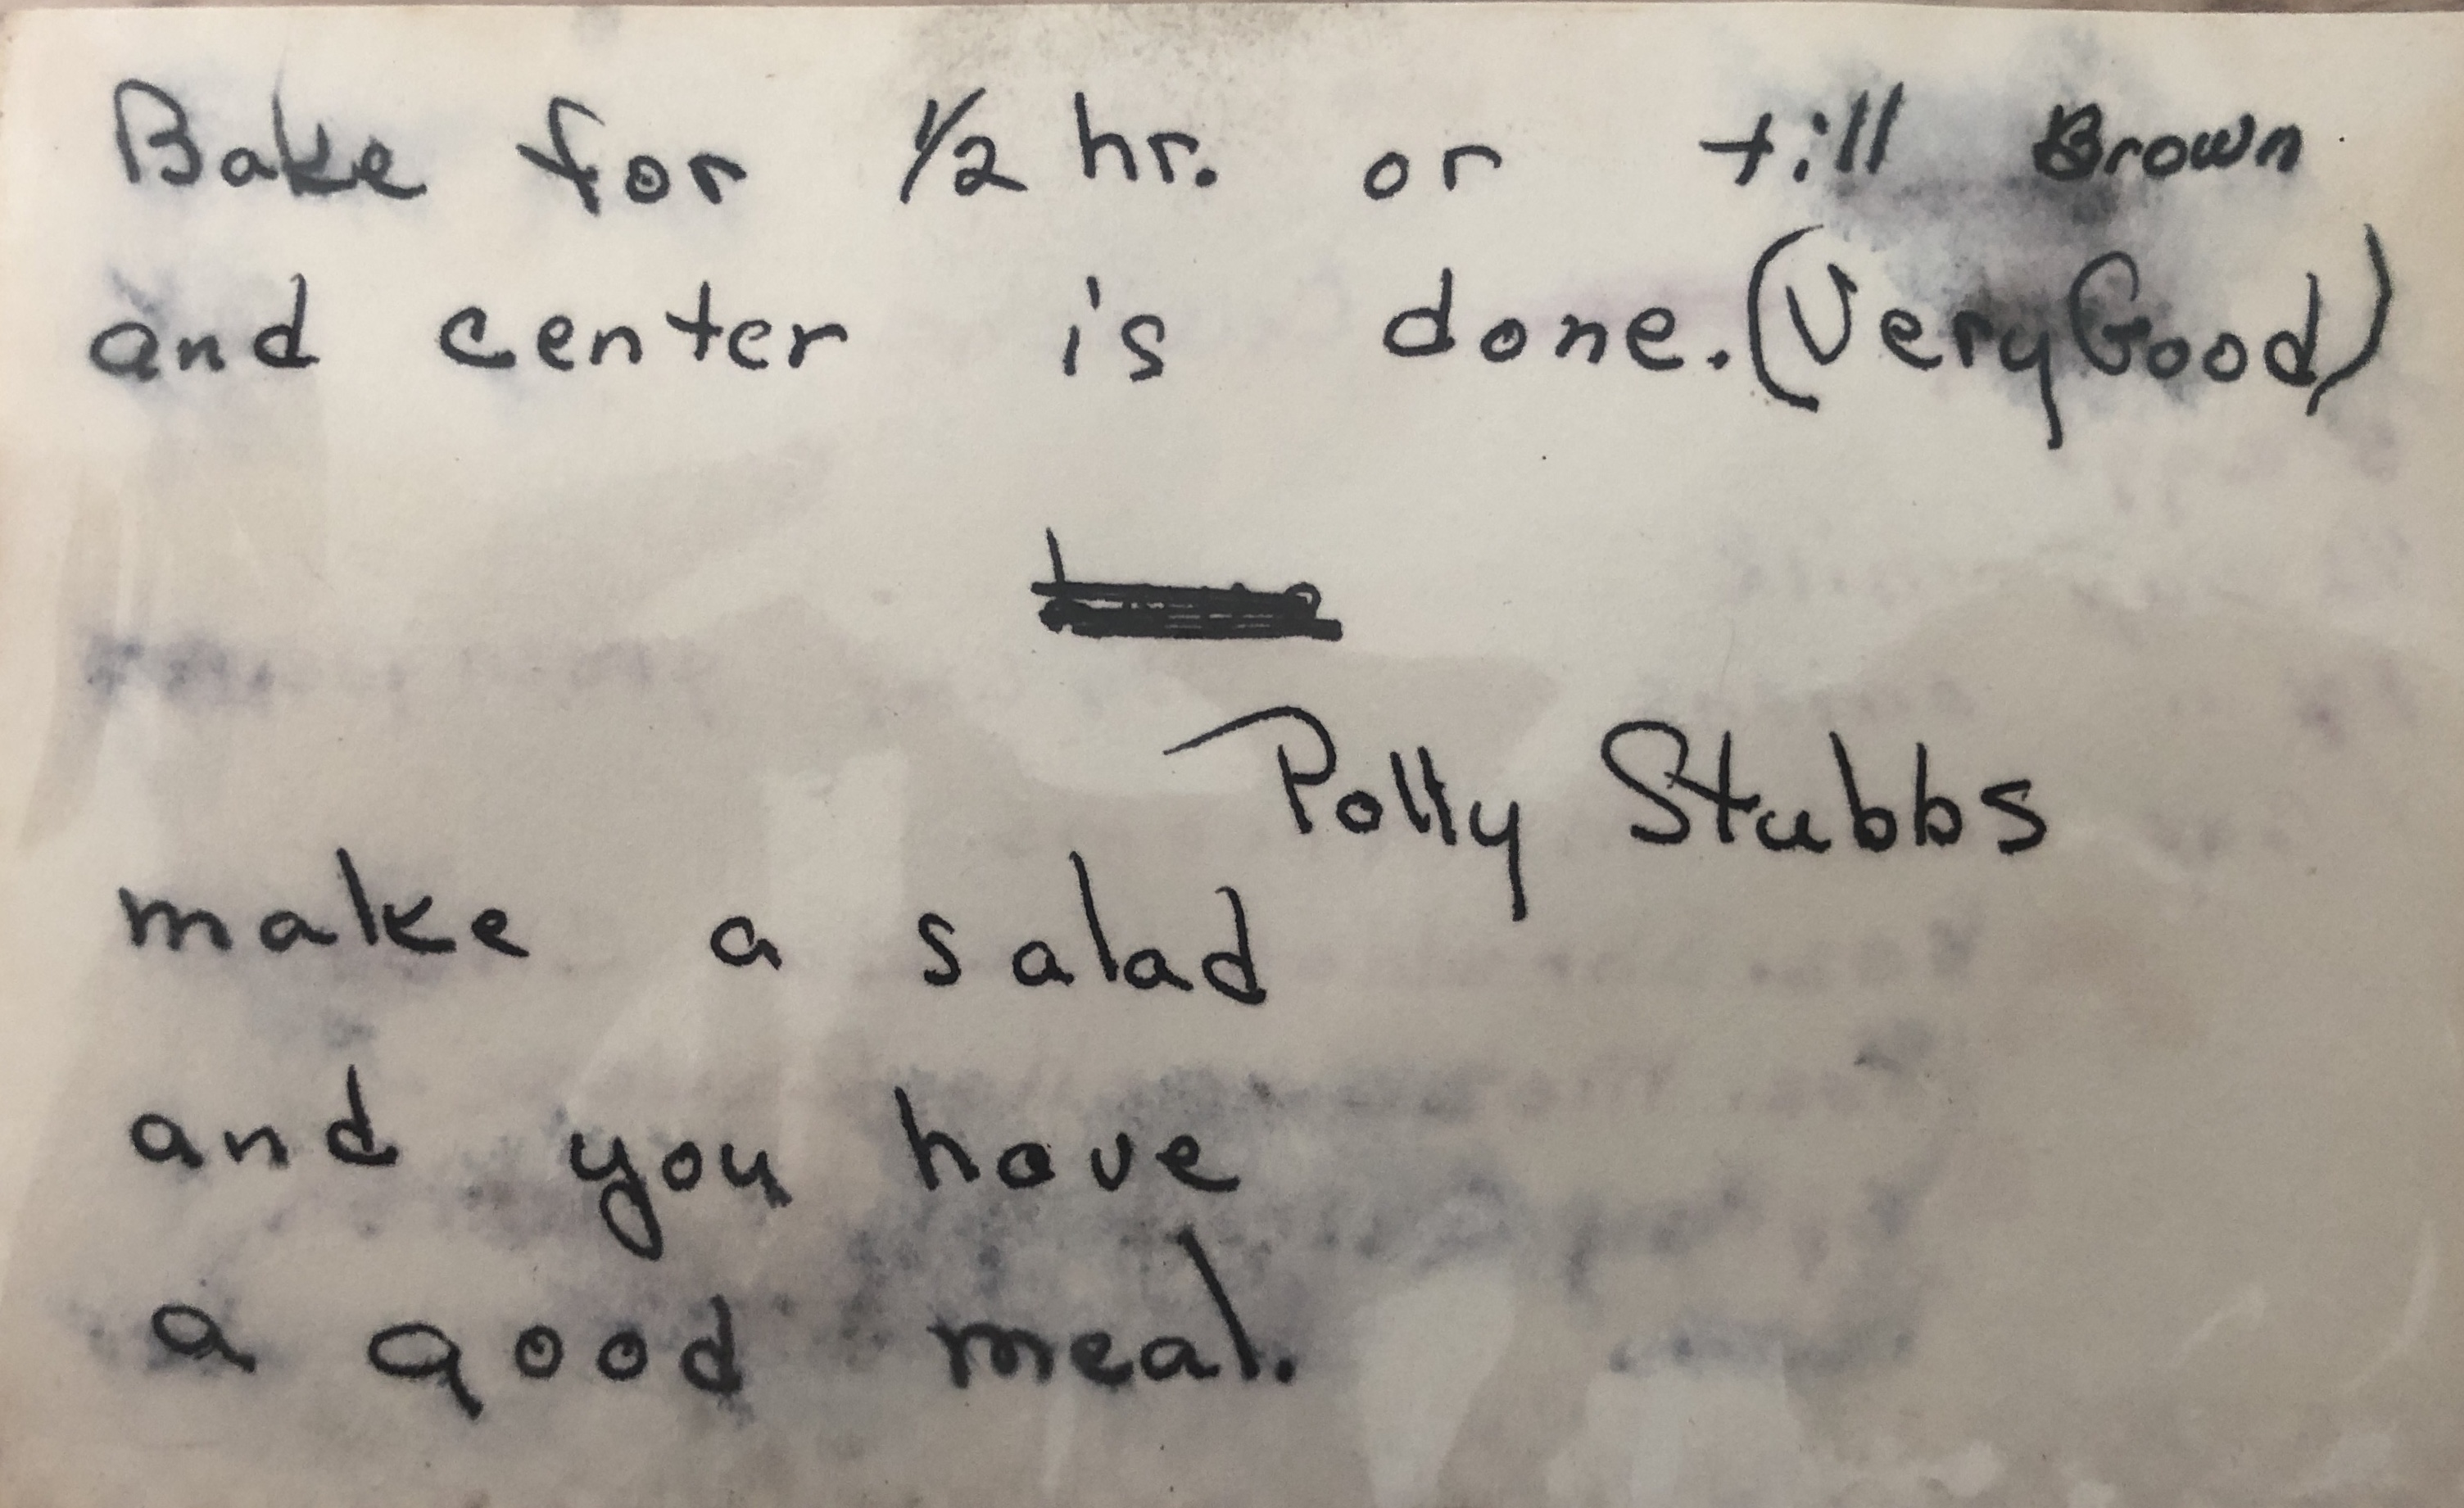 Bake for 1/2 hr. or till Brown
and center is done. (Very Good)
Polly Stubbs
make a salad
and you have
a good meal.